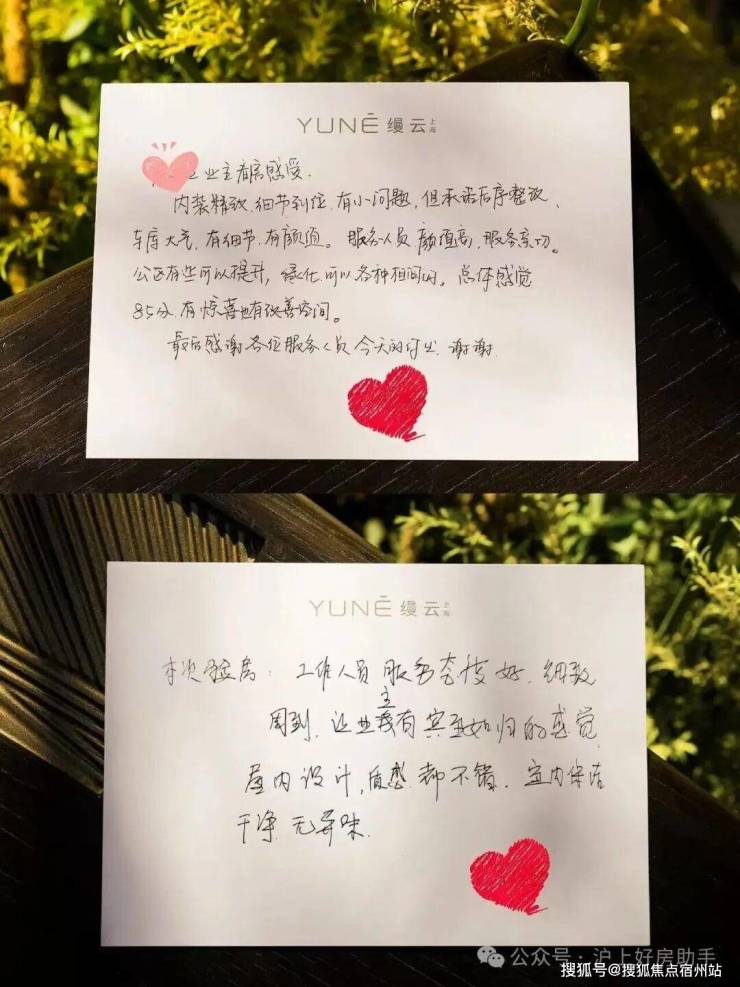 YUNĒ 缦云 上海
业主看房感受.
内装精致.细节到位.有小问题,但承诺后序整改、
车库大气,有细节.有颜值。服务人员颜值高,服务亲切。
公区有些可以提升,绿化可以各种相间的。总体感觉
85分.有惊喜也有改善空间。
最后感谢各位服务人员今天的付出.谢谢.
YUNĒ 缦云 上海
本次验房:工作人员服务态度好.细致
周到.让业主有宾至如归的感觉
屋内设计,质感都不错.室内保洁
干净 无异味.
公众号·沪上好房助手
搜狐号@搜狐焦点宿州站